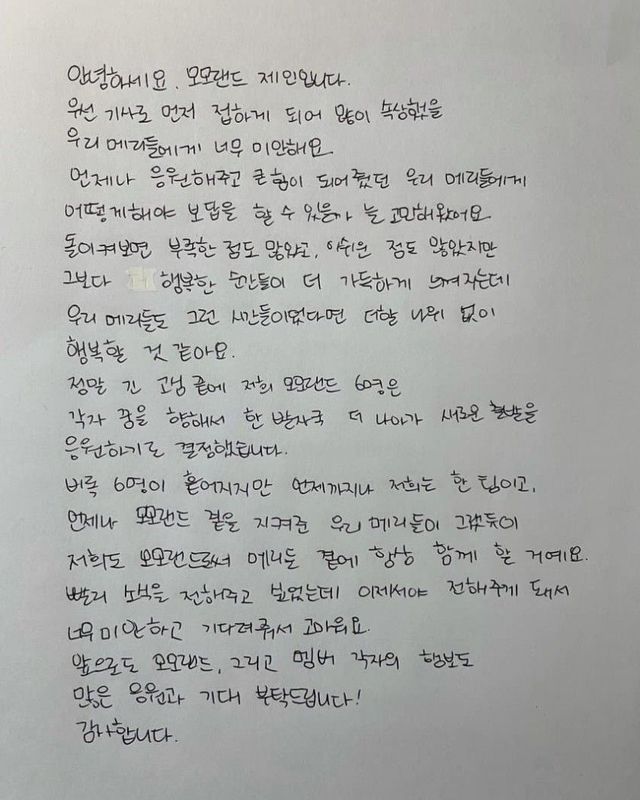 안녕하세요. 모모랜드 제인입니다.
우선 기사로 먼저 접하게 되어 많이 속상했을
우리 메리들에게 너무 미안해요
언제나 응원해주고 큰힘이 되어줬던 우리 메리들에게
어떻게해야 보답을 할 수 있을까 늘 고민해왔어요
돌이켜보면 부족한 점도 많았고, 아쉬운 점도 많았지만
그보다 행복한 순간들이 더 가득하게 느껴지는데
우리 메리들도 그런 시간들이었다면 더할 나위 없이
행복할 것 같아요.
정말 긴 고심 끝에 저희 모모랜드 6명은
각자 꿈을 향해서 한 발자국 더 나아가 새로운 출발을
응원하기로 결정했습니다.
비록 6명이 흩어지지만 언제까지나 저희는 한 팀이고,
언제나 모모랜드 곁을 지켜준 우리 메리들이 그랬듯이
저희도 모모랜드로써 메리들 곁에 항상 함께 할 거예요.
빨리 소식을 전해주고 싶었는데 이제서야 전해주게 돼서
너무 미안하고 기다려줘서 고마워요
앞으로도 모모랜드, 그리고 멤버 각자의 행보도
많은 응원과 기대 부탁드립니다!
감사합니다.